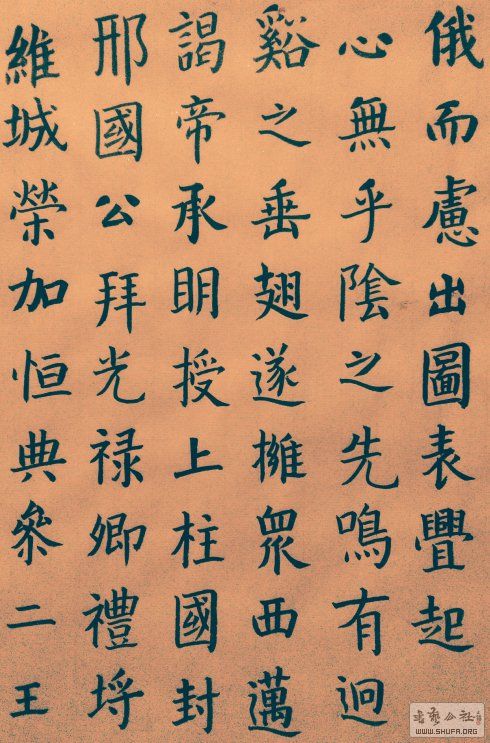 俄而慮出圖表舋起
心無乎陰之先鳴有迥
谿之垂翅遂擁眾西邁
謁帝承明授上柱國封
邢國公拜光禄卿禮埒
維城榮加恒典叅二王
WWW.SHUFA.ORG